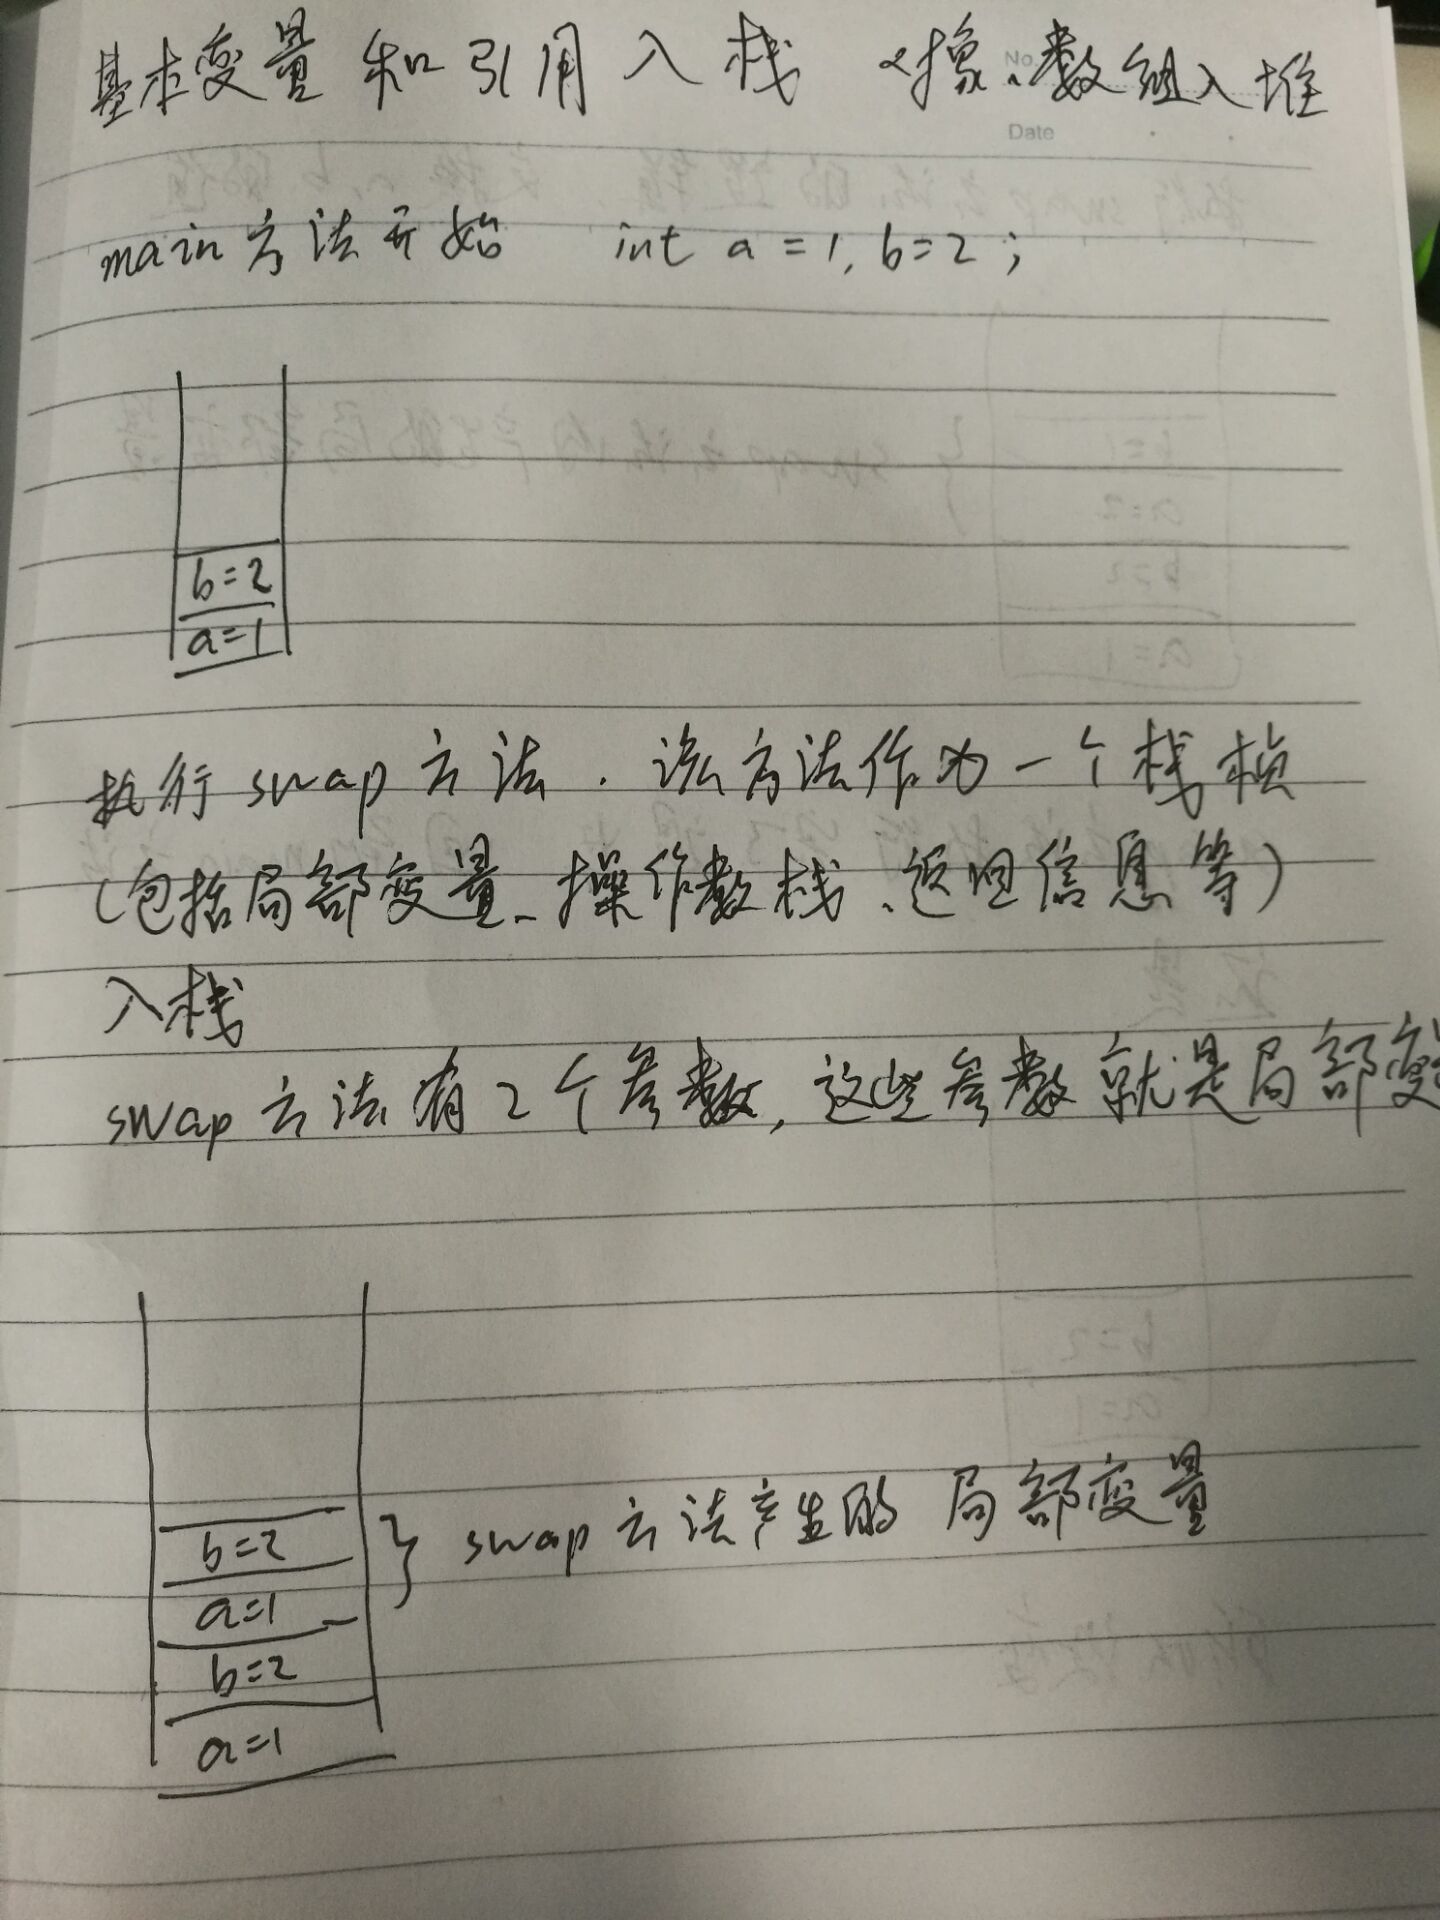 基本变量和引用入栈 对象、数组入堆
No.
Date
main方法开始 int a=1,b=2;
b=2
a=1
执行swap方法.该方法作为一个栈桢
(包括局部变量、操作数栈、返回信息等)
入栈
swap方法有2个参数,这些参数就是局部变
b=2
a=1
swap方法产生的局部变量
b=2
a=1